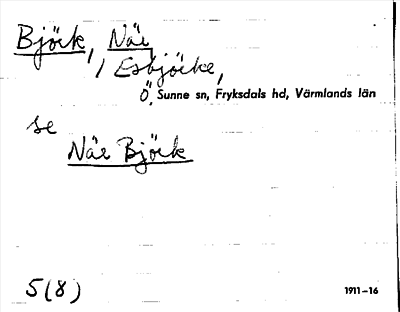 Björk, När
i Esbjörke,
Ö, Sunne sn, Fryksdals hd, Värmlands län
se
När Björk
5(8)
1911-16